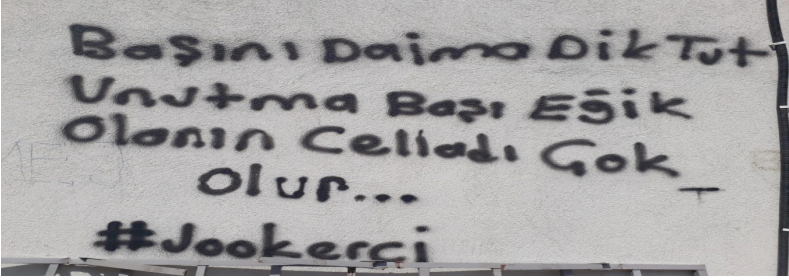 Başını Daima Dik Tut
Unutma Başı Eğik
Olanın Celladı Çok
Olur...
#Jookerci